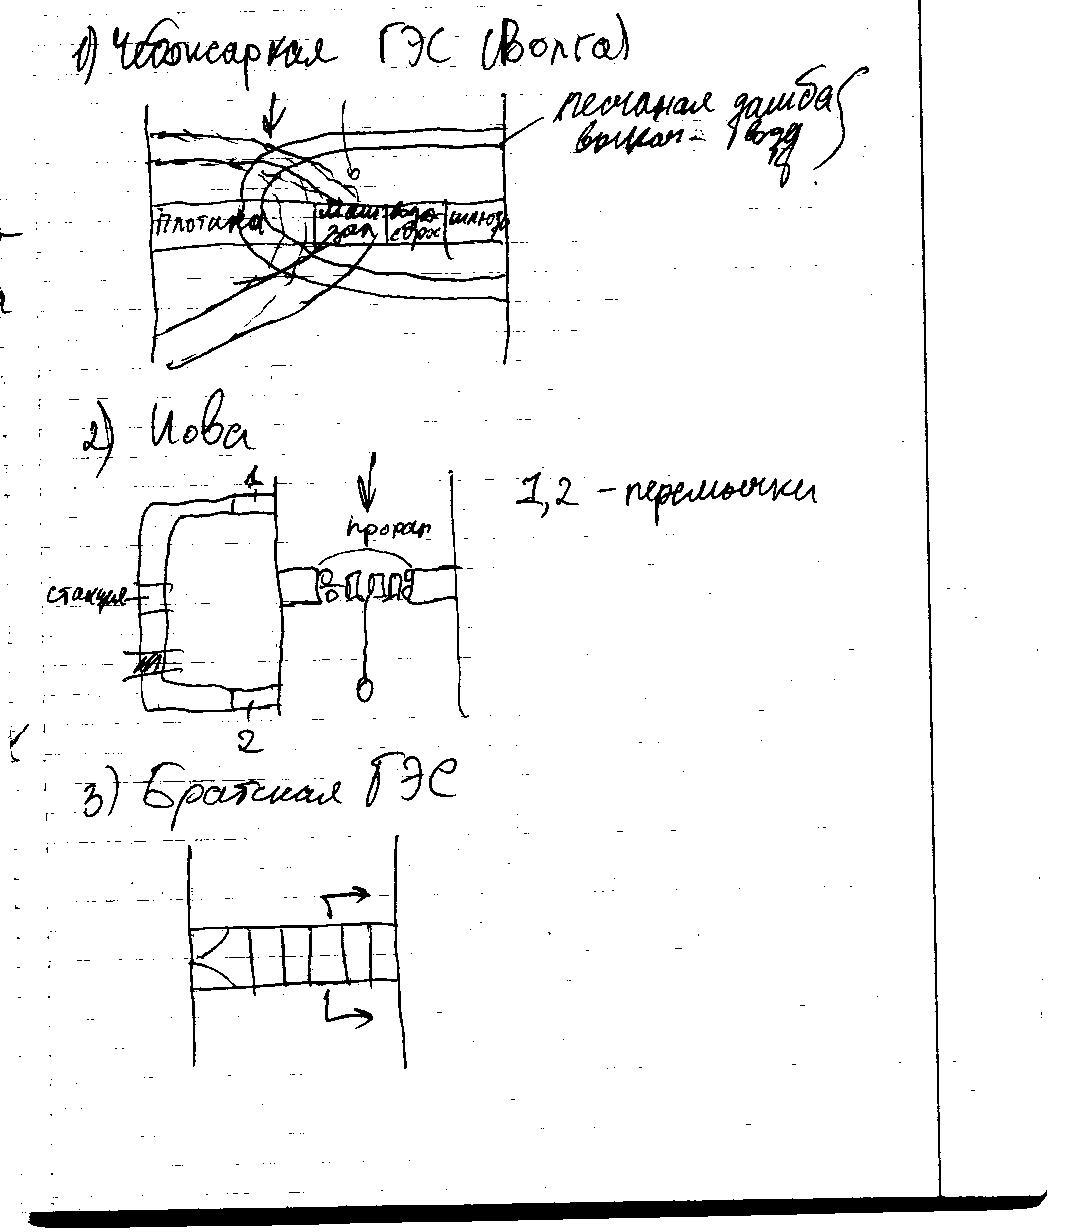 1) Чебоксаркая ГЭС (Волга)
песчаная дамба
плотина
маш
зал
водо-
сброс
шлюз
2) Иова
1
1,2 - перемычки
проран
станция
2
3) Братская ГЭС